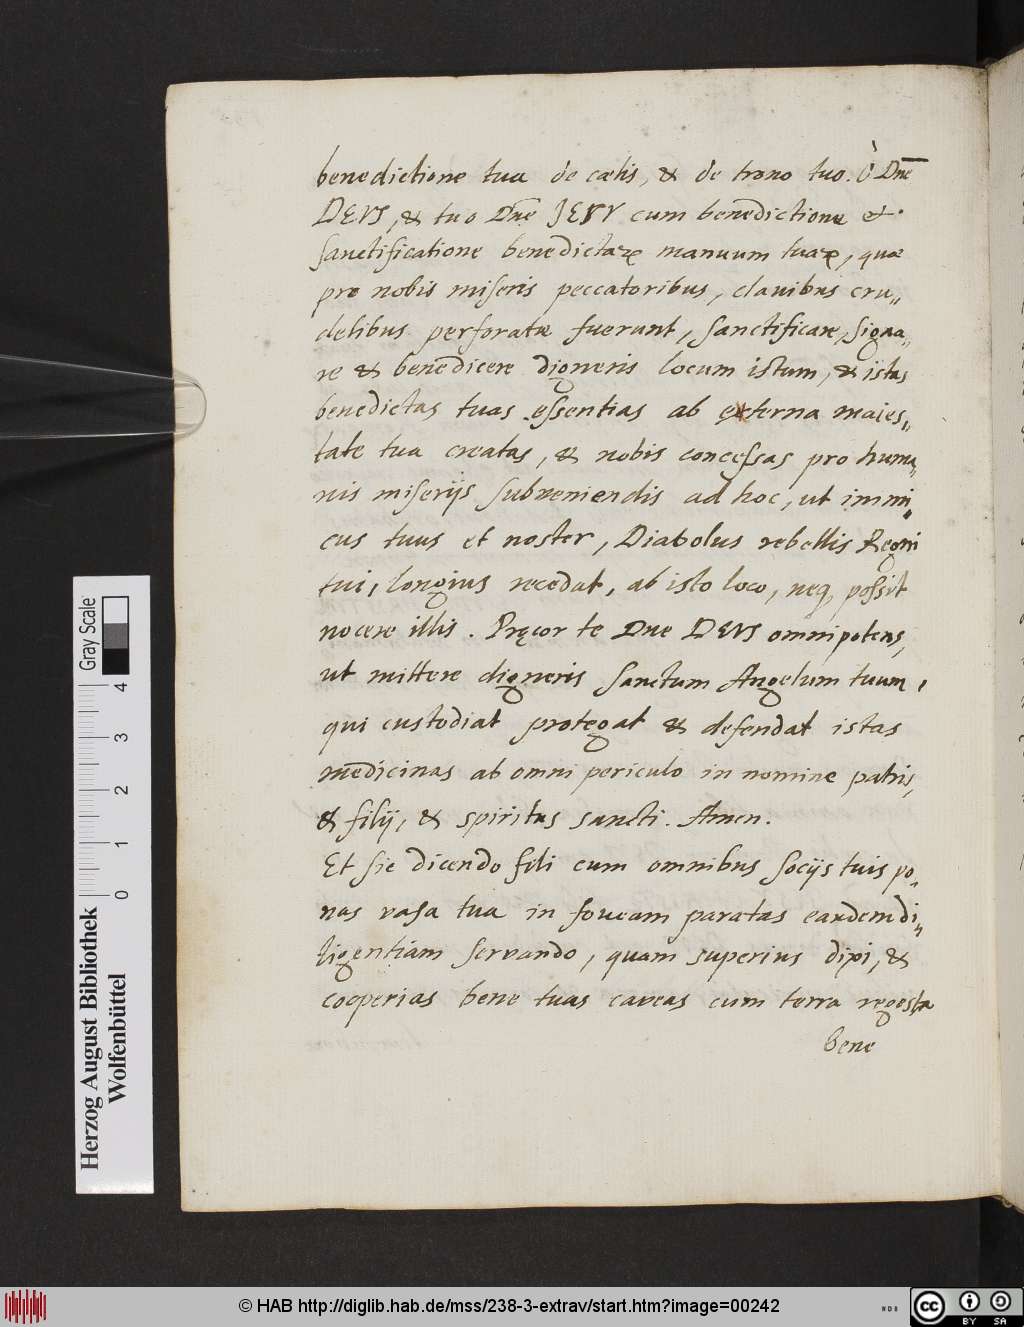 benedictione tua de cælis, & de trono tuo. ò Dn̄e
DEUS, & tuo Dn̄e JESV cum benedictione et
sanctificatione benedictaꝝ manuum tuaꝝ, quæ
pro nobis miseris peccatoribus, clauibus cru„
delibus perforatæ fuerunt, sanctificare, signa„
re & benedicere digneris locum istum, & istas
benedictas tuas essentias ab externa maies„
tate tua creatas, & nobis concessas pro huma„
nis miserijs subueniendis ad hoc, ut immi„
cus tuus et noster, Diabolus rebellis Regni
tui, longius recedat, ab isto loco, neq, possit
nocere illis. Pręcor te Dne DEUS omnipotens,
ut mittere digneris sanctum Angelum tuum,
qui custodiat protegat & defendat istas
medicinas ab omni periculo in nomine patris,
& filij, & spiritus sancti. Amen.
Et sic dicendo fili cum omnibus socijs tuis po„
nas vasa tua in foueam paratas eandem di„
ligentiam servando, quam superius dixi, &
cooperias bene tuas caveas cum terra regesta
bene
Herzog August Bibliothek
Wolfenbüttel
0 1 2 3 4
Gray Scale
© HAB http://diglib.hab.de/mss/238-3-extrav/start.htm?image=00242
cc BY SA